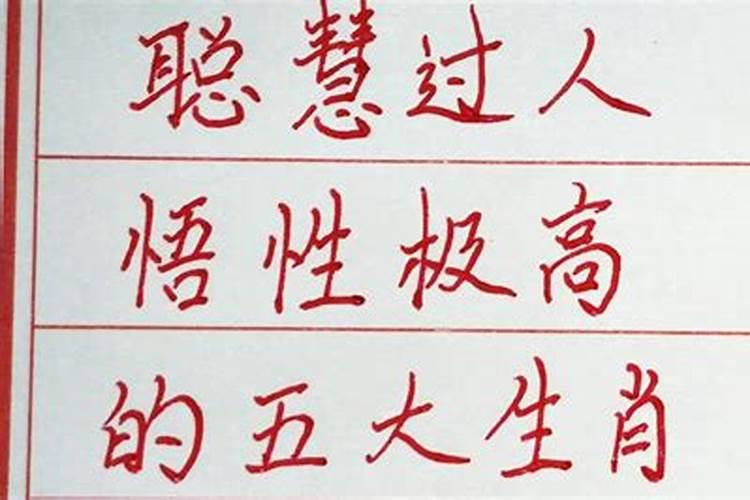 聪慧过人
悟性极高
的五大生肖